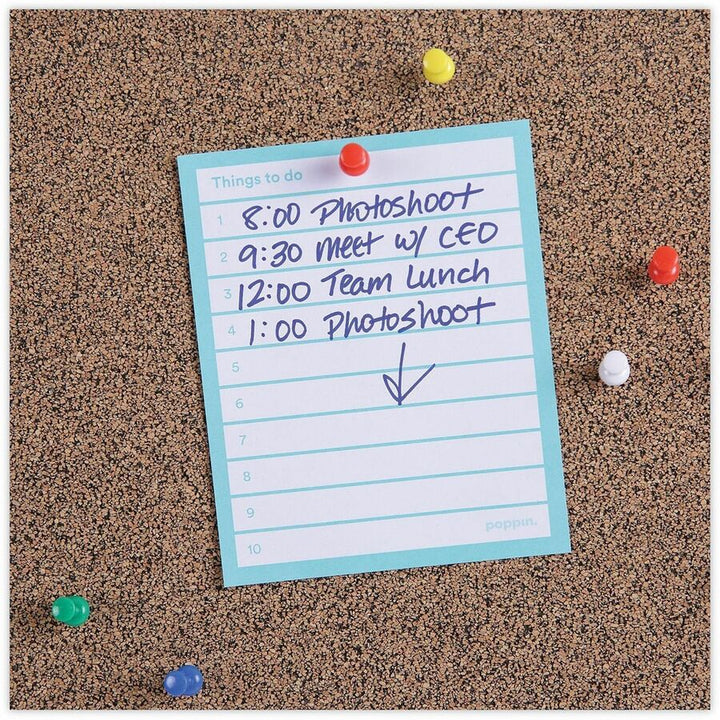 Things to do
1 8:00 Photoshoot
2 9:30 Meet w/ CEO
3 12:00 Team Lunch
4 1:00 Photoshoot
5
6
7
8
9
poppin.
10